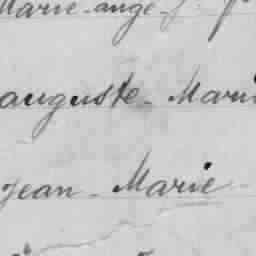 Marie-ange-
auguste-Marie
Jean-Marie